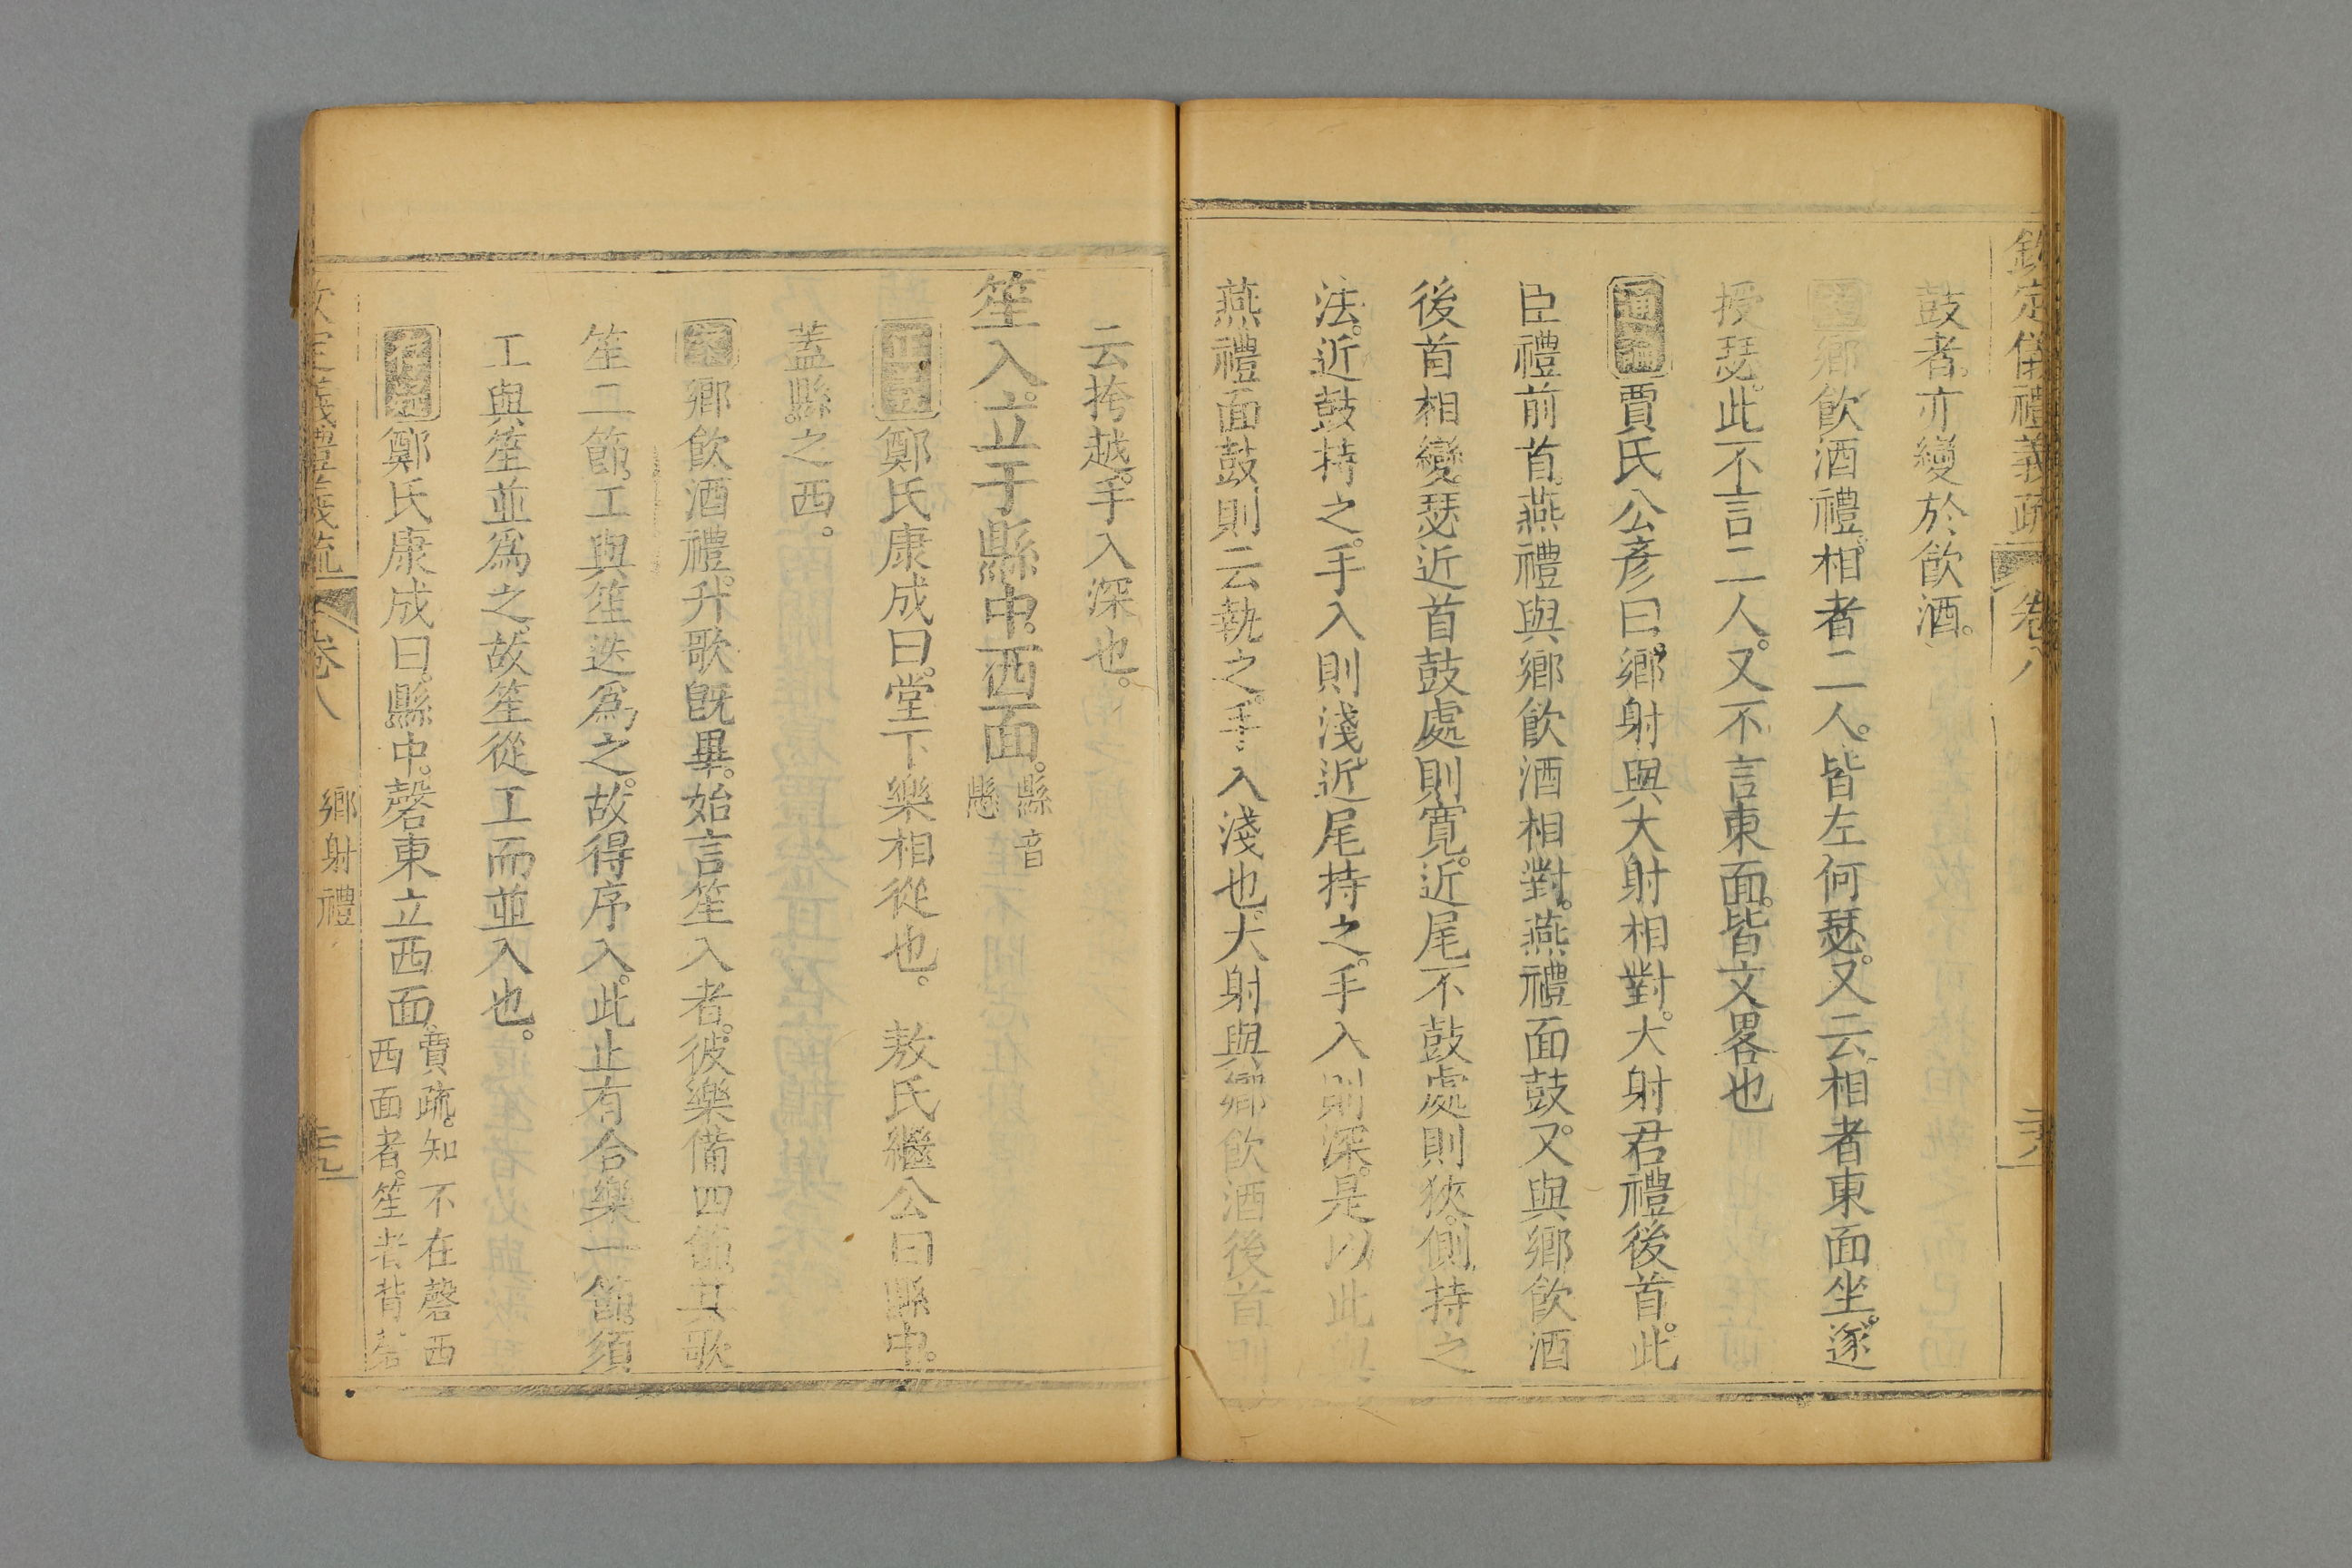 欽定儀禮義疏 卷八 二六
鼓者亦變於飲酒。
鄉飲酒禮。相者二人。皆左何瑟。又云相者東面坐。遂
授瑟。此不言二人。又不言東面。皆文畧也
通論 賈氏公彥曰。鄉射與大射相對。大射君禮後首。此
臣禮前首。燕禮與鄉飲酒相對。燕禮面鼓。又與鄉飲酒
後首相變。瑟近首鼓處則寬。近尾不鼓處則狹。側持之
法。近鼓持之。手入則淺。近尾持之。手入則深。是以此與
燕禮面鼓則云執之。手入淺也。大射與鄉飲酒後首則
云挎越。手入深也。
笙入。立于縣中。西面。縣音
懸
正義 鄭氏康成曰。堂下樂相從也。 敖氏繼公曰縣中。
蓋縣之西。
案 鄉飲酒禮。升歌旣畢。始言笙入者。彼樂備四節。其歌
笙二節。工與笙迭爲之。故得序入。此止有合樂一節。須
工與笙並爲之。故笙從工而並入也。
存疑 鄭氏康成曰。縣中。磬東立西面。賈疏。知不在磬西
西面者。笙者背磬
欽定儀禮義疏 卷八 鄉射禮 二九